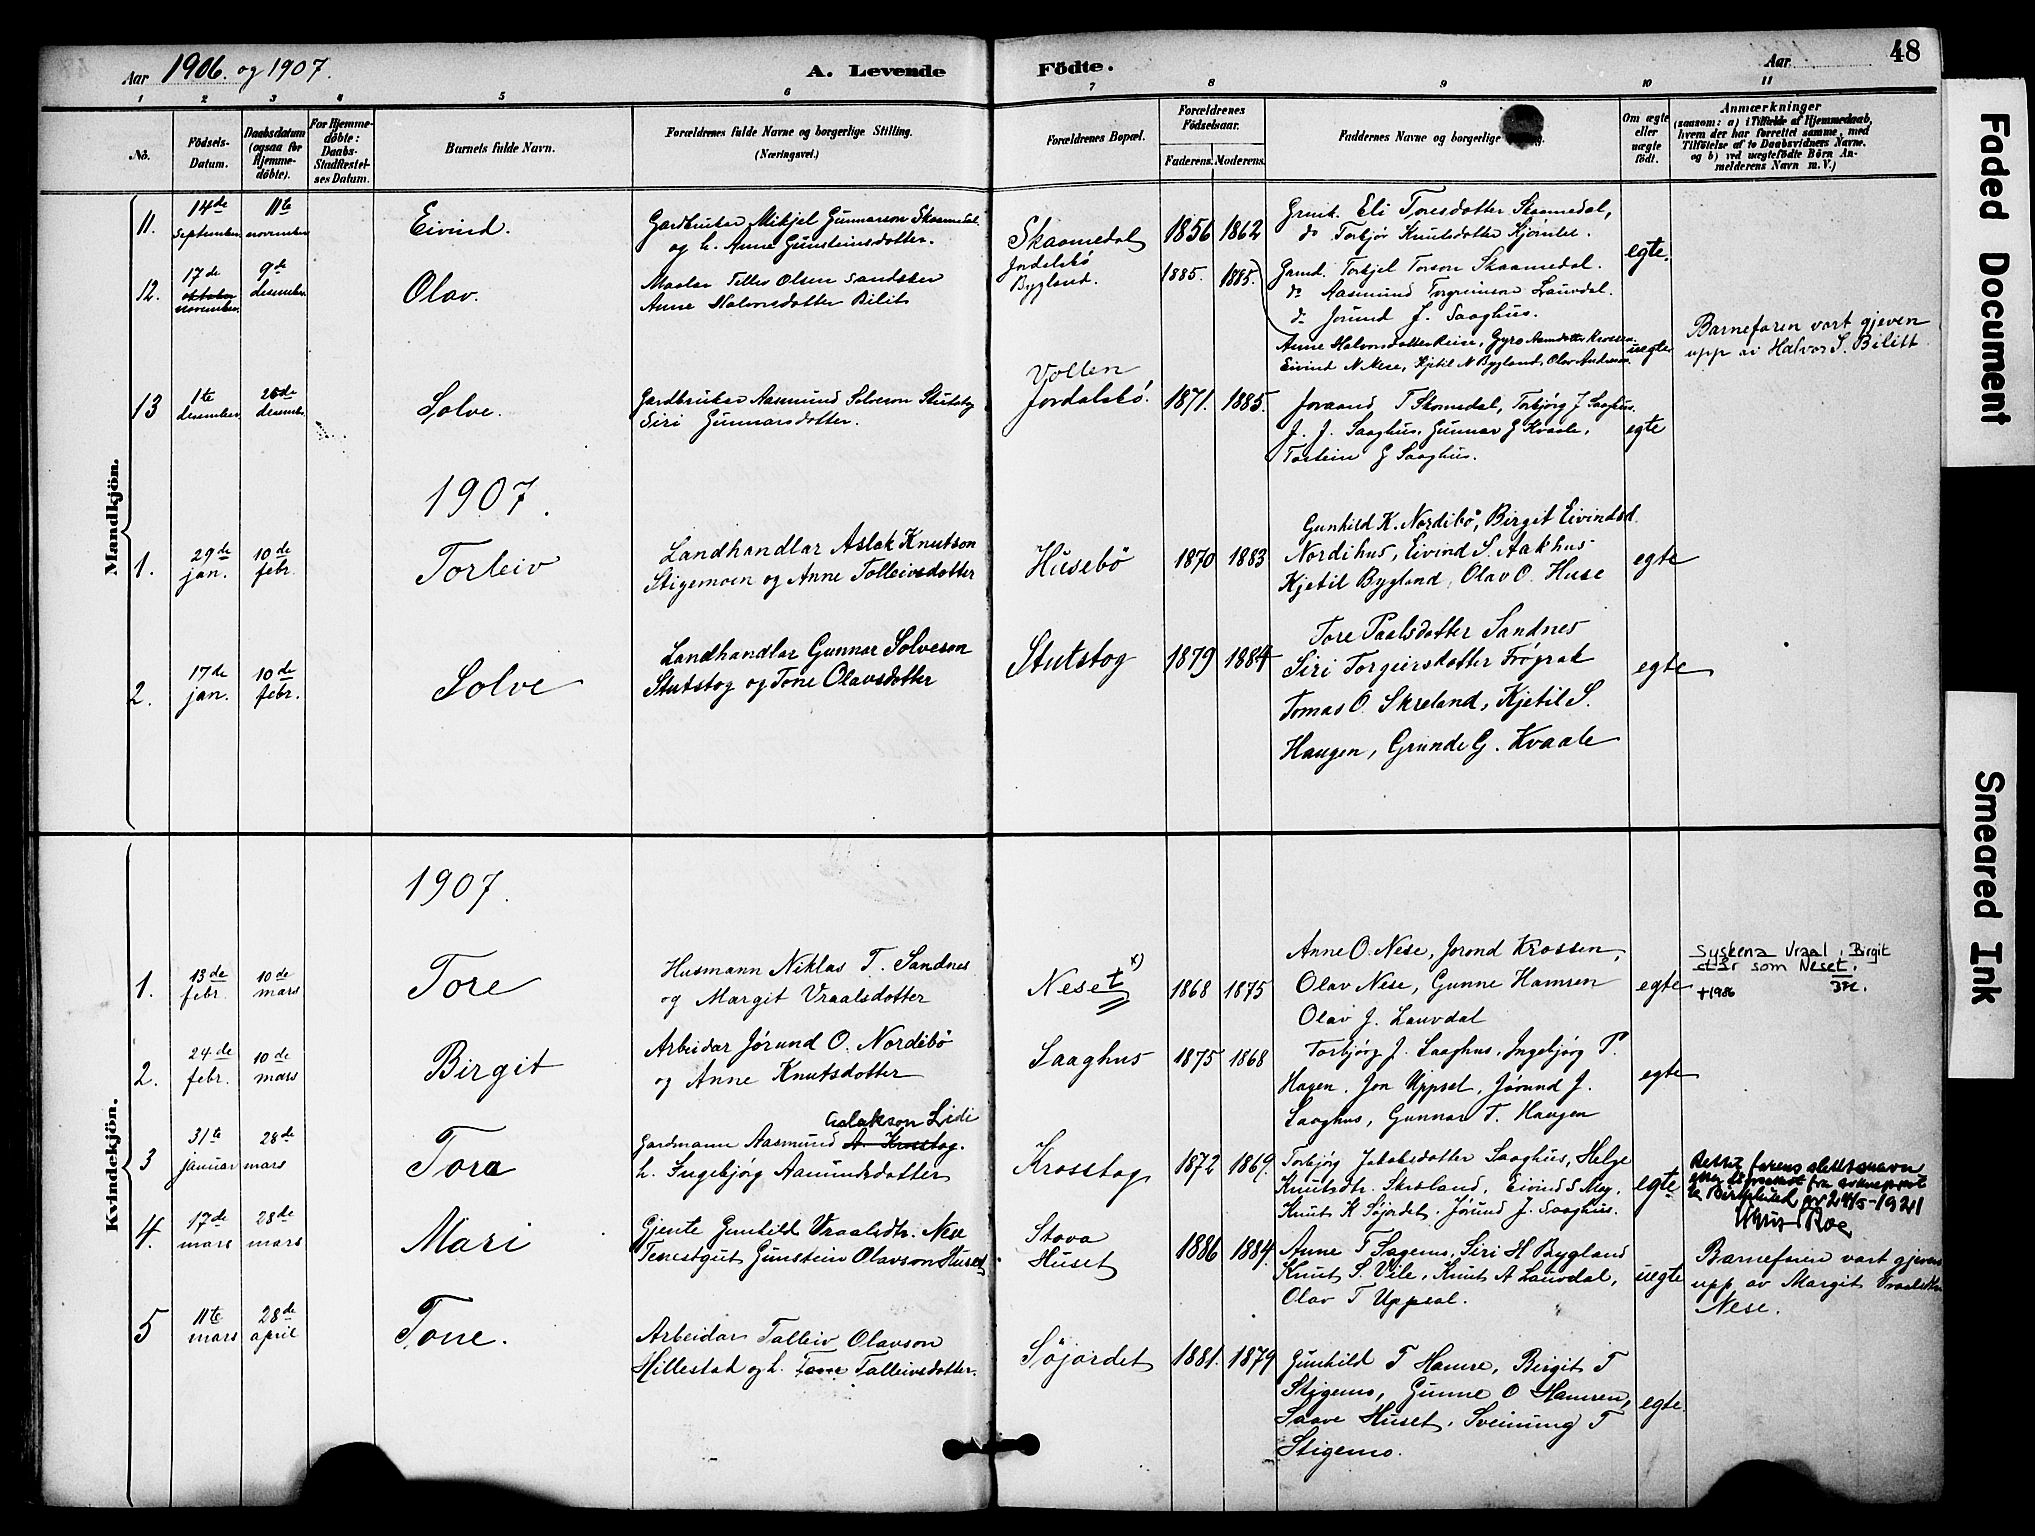 Aar 1906. og 1907.
A. Levende Födte.
Aar
48
1 2 3 4 5 6 7 8 9 10 11
No.
Födsels-
Datum.
Daabsdatum
(ogsaa for
Hjemme-
döbte).
For Hjemme-
döbte:
Daabs-
Stadfæstel-
ses Datum.
Barnets fulde Navn.
Forældrenes fulde Navne og borgerlige Stilling.
(Næringsvei.)
Forældrenes Bopæl.
Forældrenes
Födselsaar.
Faderens. Moderens.
Faddernes Navne og borgerlige
Om ægte
eller
uægte
födt.
Anmærkninger
(saasom: a) i Tilfælde af Hjemmedaab,
hvem der har forrettet samme, med
Tilföielse af to Daabsvidners Navne.
og b) ved uægtefödte Börn An-
melderens Navn m. V.)
Mandkjön.
11.
14de
september
11te
november
Eivind.
Gardbrukar Mikjel Gunnarson Skaamedal
og h. Anne Gunsteinsdotter.
Skaamedal
1856 1862
Grmk. Eli Toresdotter Skaamedal,
do Torbjør Knutsdotter Kjomlee.
Gamd. Torkjel Torson Skaamedal.
do Aasmund Torgrimson Lauvdal.
do Jorund J. Saaghus.
egte.
12.
17de
oktober
november.
9de
desember
Olav.
Maalar Tellev Olsen Sandsker
Anne Halvorsdotter Bilit
Jordalsbö
Bygland.
1885. 1885.
Anne Halvorsdotter Reise, Gyro Aamdotter Krossen.
Eivind N Nese, Kjetil N Bygland, Olav Anderson
uegte
Barnefaren vart gjeven
upp av Halvor S. Bilitt
13
1te
desember.
26de
desember
Solve.
Gardbrukar Aasmund Solveson Stutstog
Siri Gunnarsdotter.
Vollen
Jordalsbö.
1871. 1885.
Joraand T Skomedal, Torbjørg J Saaghus.
J. J. Saaghus, Gunnar G Kvaale,
Torstein G Saaghus.
egte
1907.
1.
29de
jan.
10de
febr.
Torleiv
Landhandlar Aslak Knutson
Stigemoen og Anne Tolleivsdotter
Husebö
1870 1883
Gunhild K. Nordibö, Birgit Eivindsd.
Nordihus, Eivind S. Aakhus
Kjetil Bygland, Olav O. Huse
egte
2.
17de
jan.
10de
febr.
Solve
Landhandlar Gunnar Solveson
Stutstog og Tone Olavsdotter
Stutstog
1879 1884
Tore Paalsdotter Sandnes
Siri Torgeirsdotter Frøyrak
Tomas O. Skreland, Kjetil S.
Haugen, Grunde G. Kvaale
egte
Kvindekjön.
1907.
1.
13de
febr.
10de
mars
Tore
Husmann Niklas T. Sandnes
og Margit Vraalsdotter
Neset x)
1868 1875
Anne O. Nese, Jorond Krossen,
Olav Nese, Gunne Hamren
Olav J. Lauvdal
egte
Syskena Vraal, Birgit
står som Neset.
†1986
2.
24de
febr.
10de
mars
Birgit
Arbeidar Jörund O. Nordibö
og Anne Knutsdotter
Saaghus
1875 1868
Torbjørg J. Saaghus, Ingebjørg T.
Hagen. Jon Uppsal, Jörund J.
Saaghus, Gunnar T. Haugen
egte
3
31te
januar
28de
mars
Tora
Aslakson Lidi
Gardmann Aasmund A. Krostog.
h. Ingebjörg Aamundsdotter
Krosstog
1872 1869.
Torbjörg Jakobsdotter Saaghus, Helge
Knutsdtr. Skreland, Eivind S Moy,
Knut K Søjordet, Jörund J. Saaghus.
egte
Rettet farens slektsnavn
24/5-1921
4.
17de
mars
28de
mars
Mari
Gjente Gunhild Vraalsdtr. Nese
Tenestgut Gunstein Olavson Huset
Stova
Huset
1886 1884.
Anne T Sagemo, Siri H Bygland
Knut S. Vile, Knut A Lauvdal,
Olav T Uppsal.
uegte
Barnefaren vart gjeven
upp av Margit Vraalsdtr
Nese.
5
11te
mars
28de
april
Tone.
Arbeidar Talleiv Olavson
Hillestad og h. Tone Talleivsdotter.
Söjordet
1881. 1879
Gunhild T Hamre, Birgit T
Stigemo, Gunne O Hamren,
Saave Huset, Sveinung T
Stigemo.
egte.
Faded Document
Smeared Ink